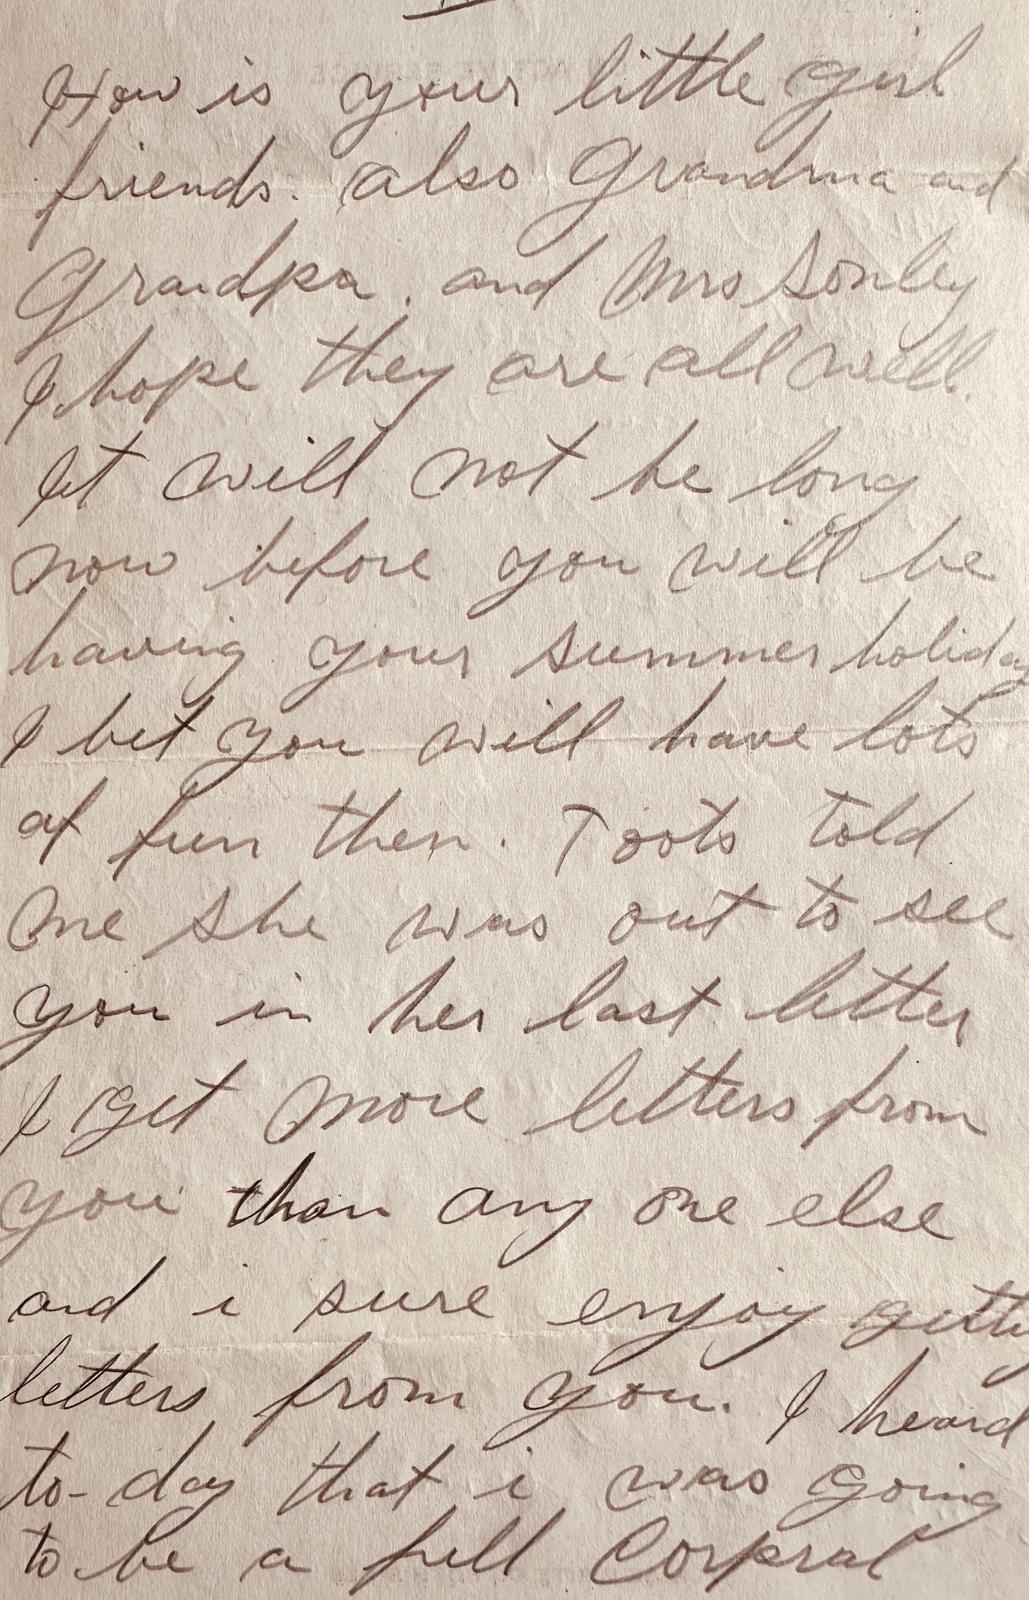 How is your little girl
friends. also Grandma and
Grandpa. and Mrs Sonley
I hope they are all well.
It will not be long
now before you will be
having your summer holiday
I bet you will have lots
of fun then. Toots told
me she was out to see
you in her last letter
I get more letters from
you than any one else
and i sure enjoy getting
letters from you. I heard
to-day that i was going
to be a full Corpral